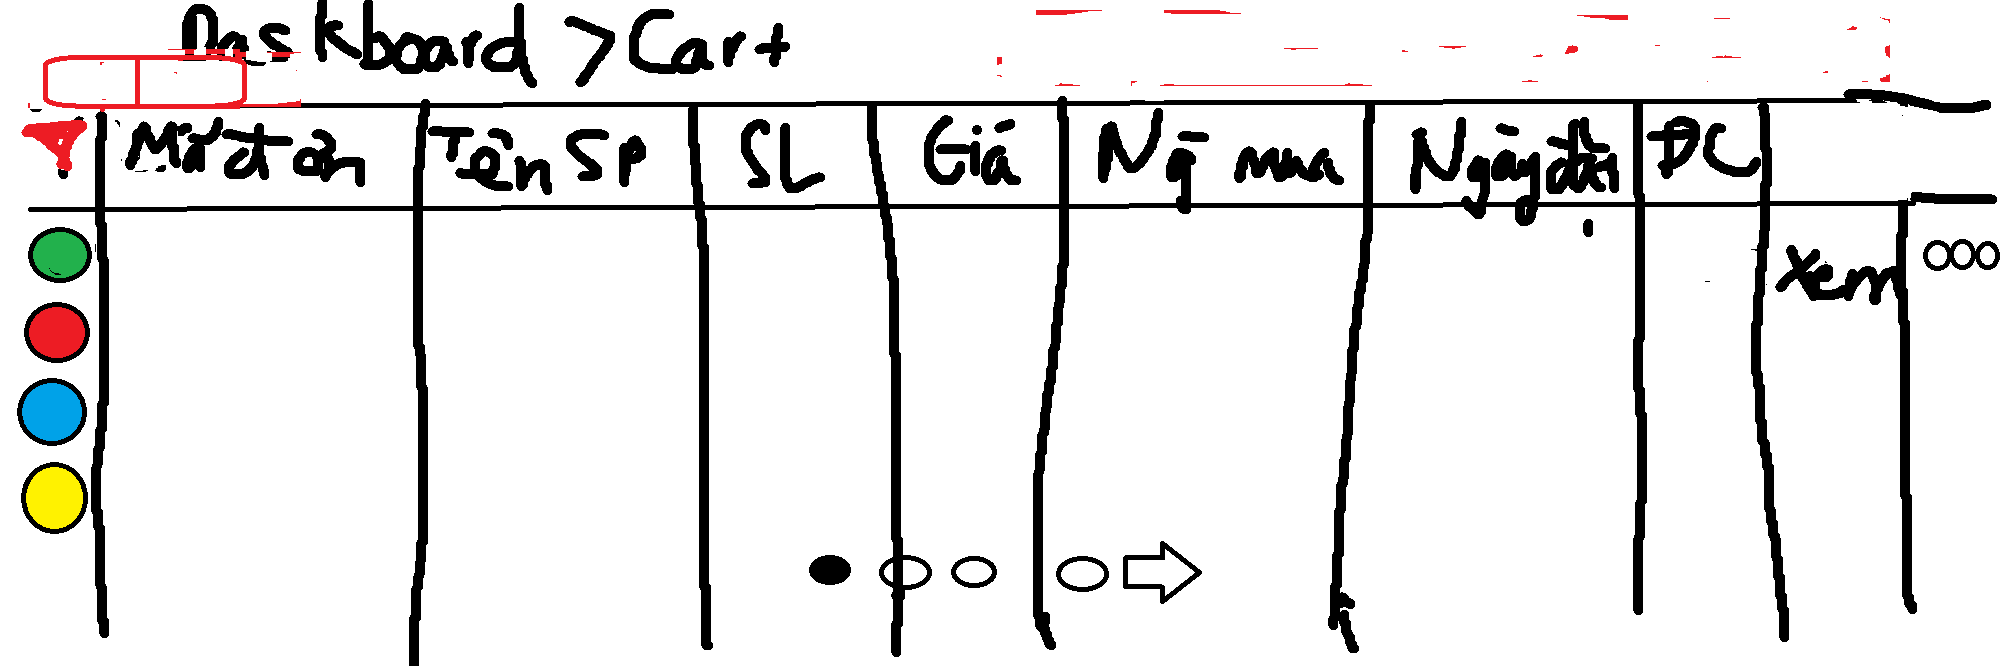 Daskboard > Cart
Mã đơn Tên SP SL Giá Ng mua Ngày đặt ĐC
Xem